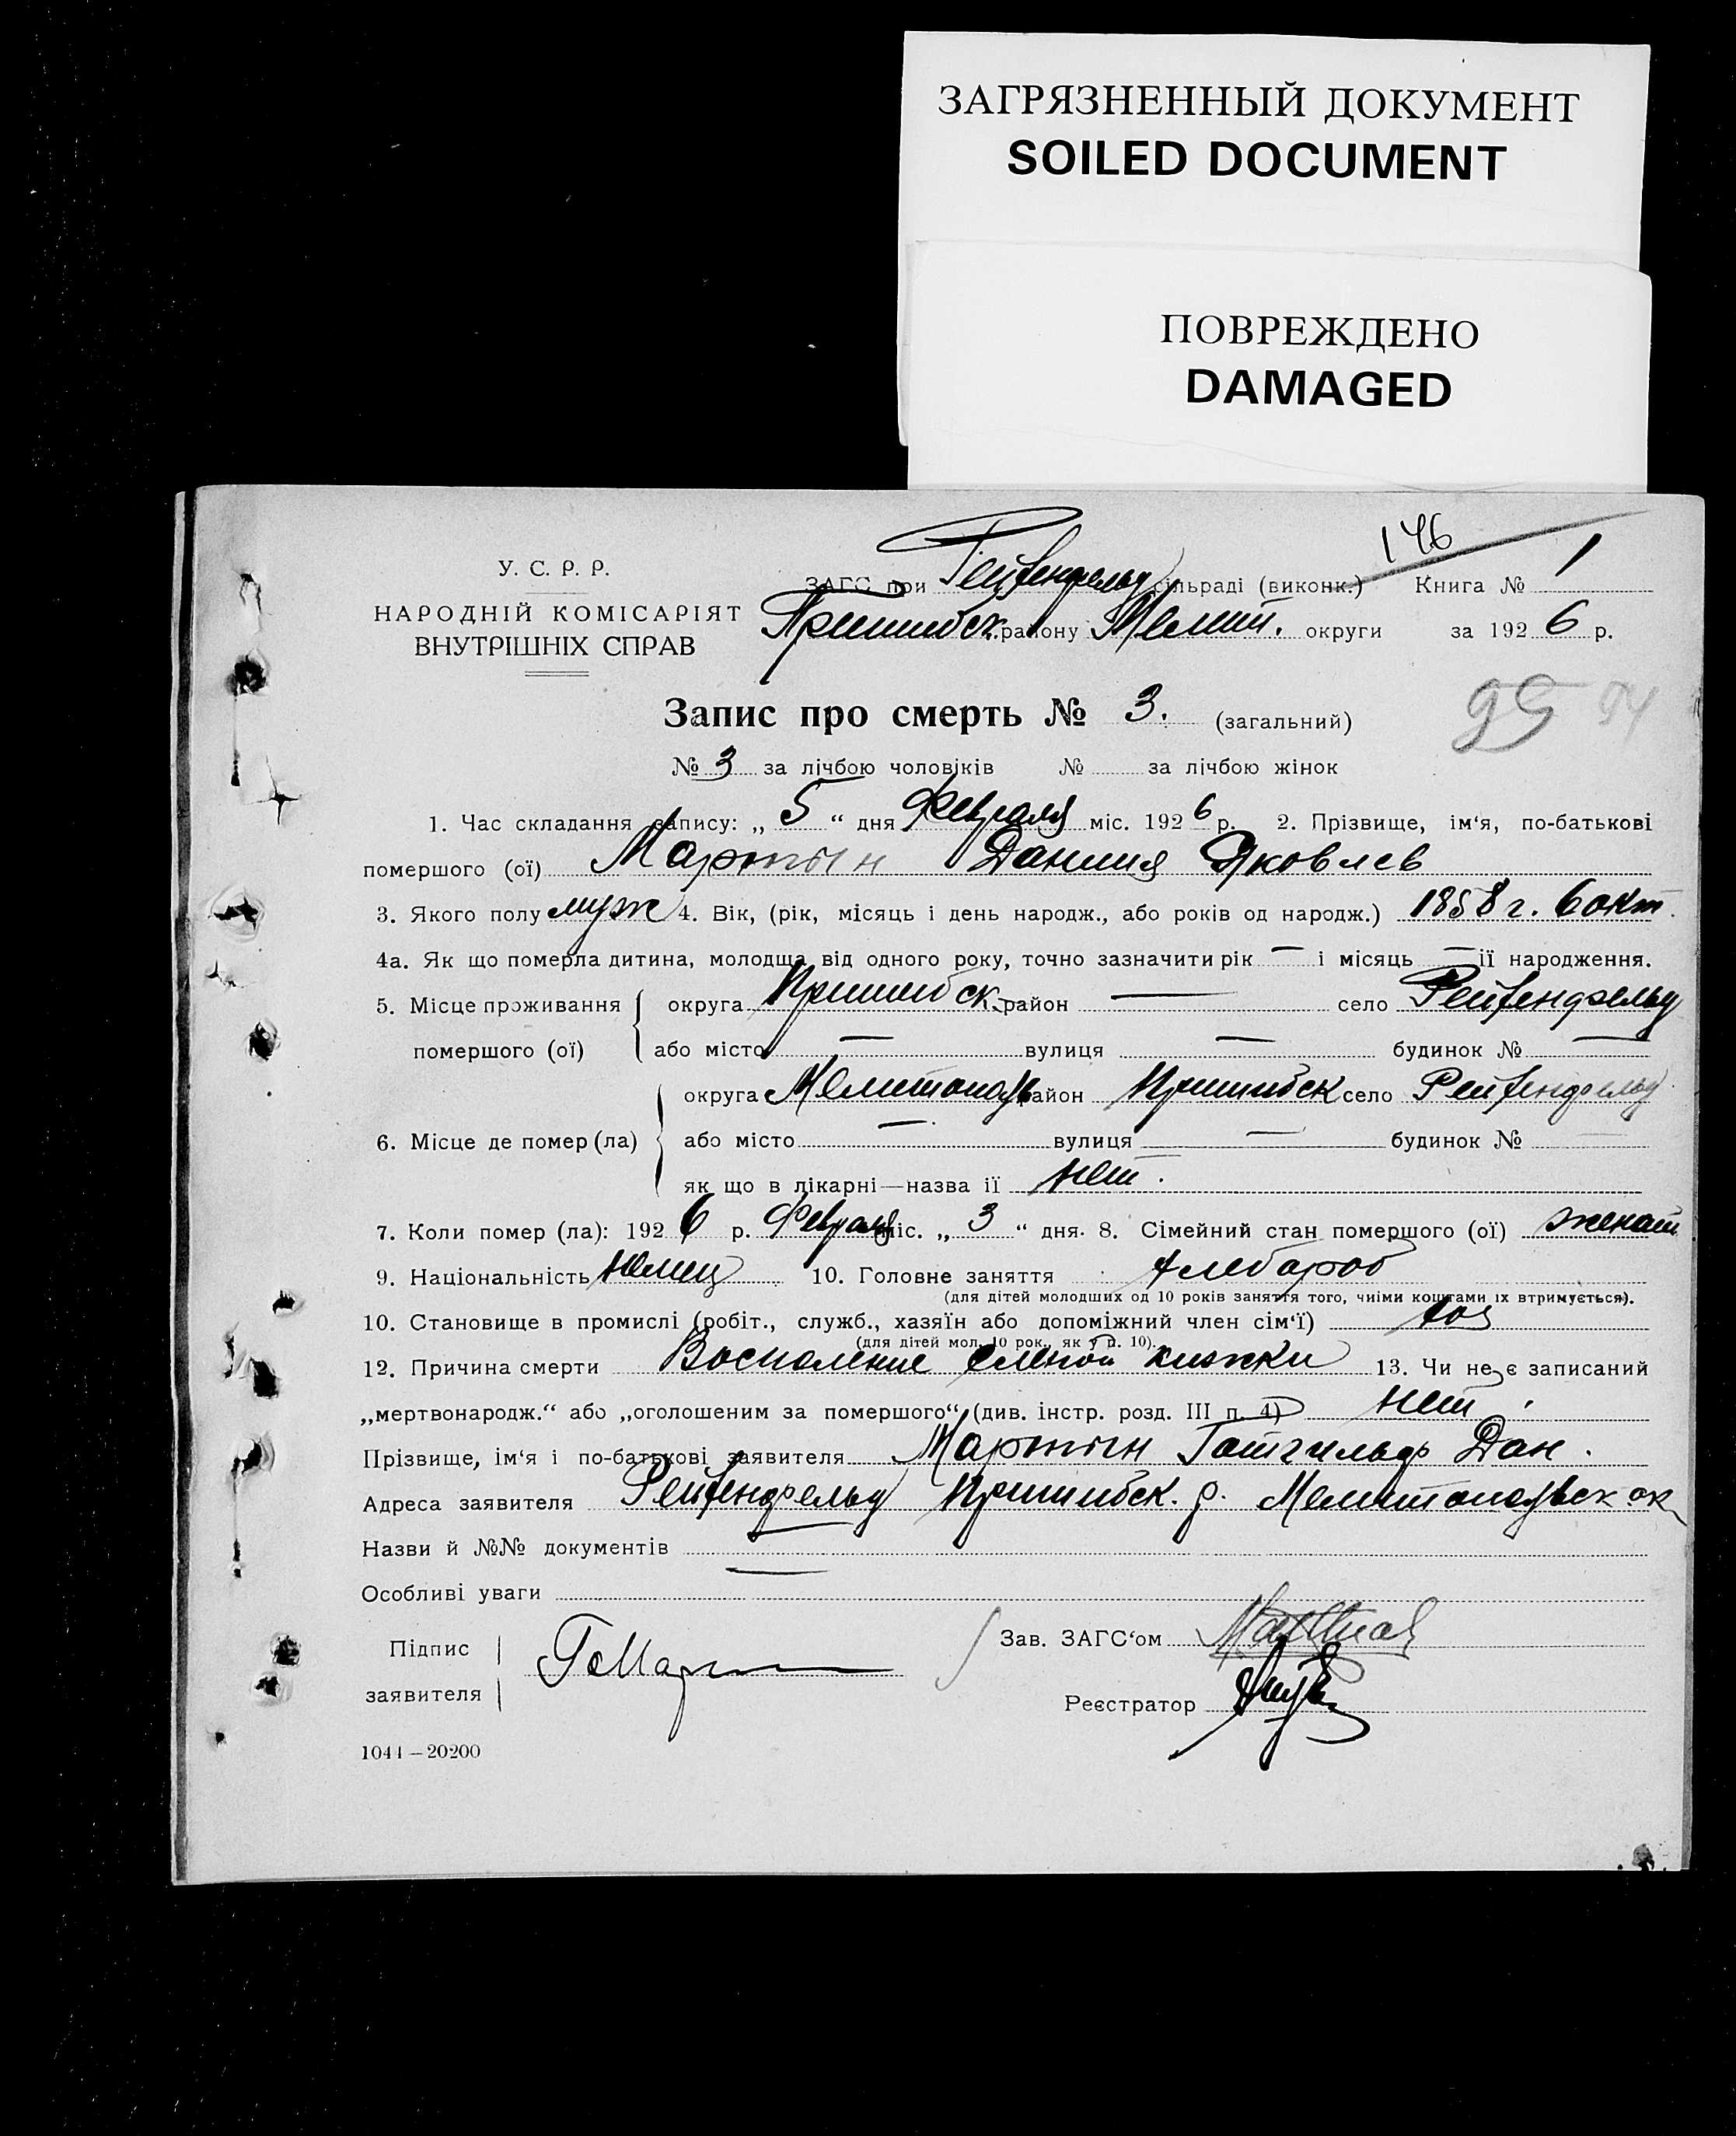 ЗАГРЯЗНЕННЫЙ ДОКУМЕНТ
SOILED DOCUMENT
ПОВРЕЖДЕНО
DAMAGED
146
У. С. Р. Р.
НАРОДНІЙ КОМІСАРІЯТ
ВНУТРІШНІХ СПРАВ
ЗАГС при Рейхенфельд сільраді (виконк.) Книга № 1
Пришибск. району Мелит. округи за 1926 р.
Запис про смерть № 3. (загальний)
95 94
№ 3 за лічбою чоловіків № за лічбою жінок
1. Час складання запису: „ 5 “ дня Февраля міс. 1926 р. 2. Прізвище, ім‘я, по-батькові
помершого (ої) Мартын Даниил Яковлев
3. Якого полу муж 4. Вік, (рік, місяць і день народж., або років од народж.) 1858 г. 6 окт.
4а. Як що померла дитина, молодща від одного року, точно зазначити рік — і місяць — ії народження.
5. Місце проживання округа Пришибск. район — село Рейхенфельд
помершого (ої) або місто — вулиця — будинок № —
округа Мелитопол район Пришибск село Рейхенфельд
6. Місце де помер (ла) або місто — вулиця — будинок №
як що в лікарні—назва ії нет.
7. Коли помер (ла): 1926 р. Февраля міс. „ 3 “ дня. 8. Сімейний стан помершого (ої) женат
9. Національність Немец 10. Головне заняття хлебороб
(для дітей молодших од 10 років заняття того, чиїми коштами їх втримується).
10. Становище в промислі (робіт., служб., хазяїн або допоміжний член сім‘ї) хоз
(для дітей мол. 10 рок., як у п. 10).
12. Причина смерти Воспаление слепой кишки 13. Чи не є записаний
„мертвонародж.“ або „оголошеним за помершого“ (див. інстр. розд. III п. 4) нет
Прізвище, ім‘я і по-батькові заявителя Мартын Готгильф Дан.
Адреса заявителя Рейхенфельд Пришибск. р. Мелитопольск ок
Назви й №№ документів
Особливі уваги —
Підпис
заявителя Г Март
Зав. ЗАГС‘ом
Реєстратор
1044—20200